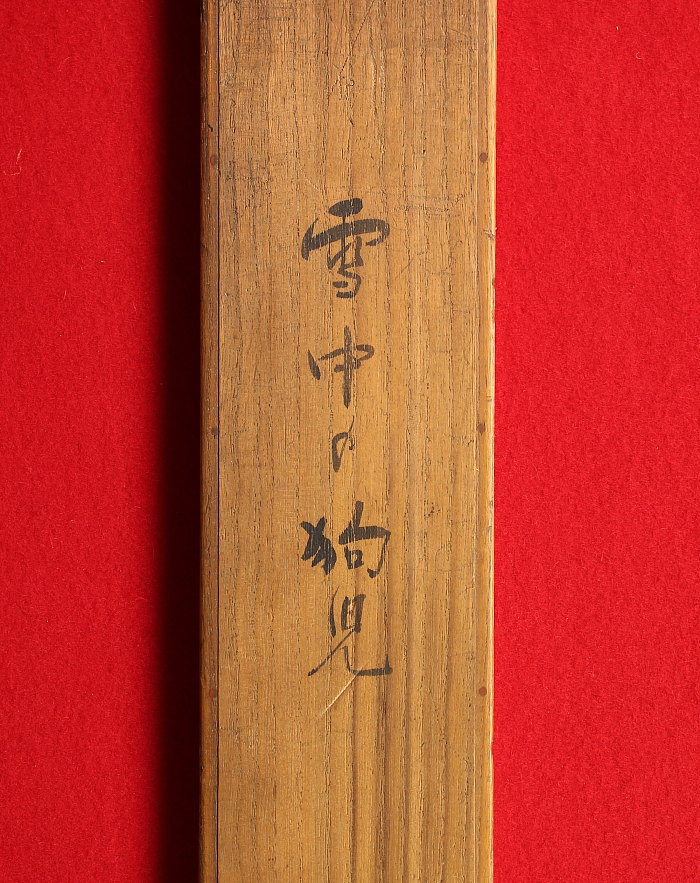 雪中の狗児